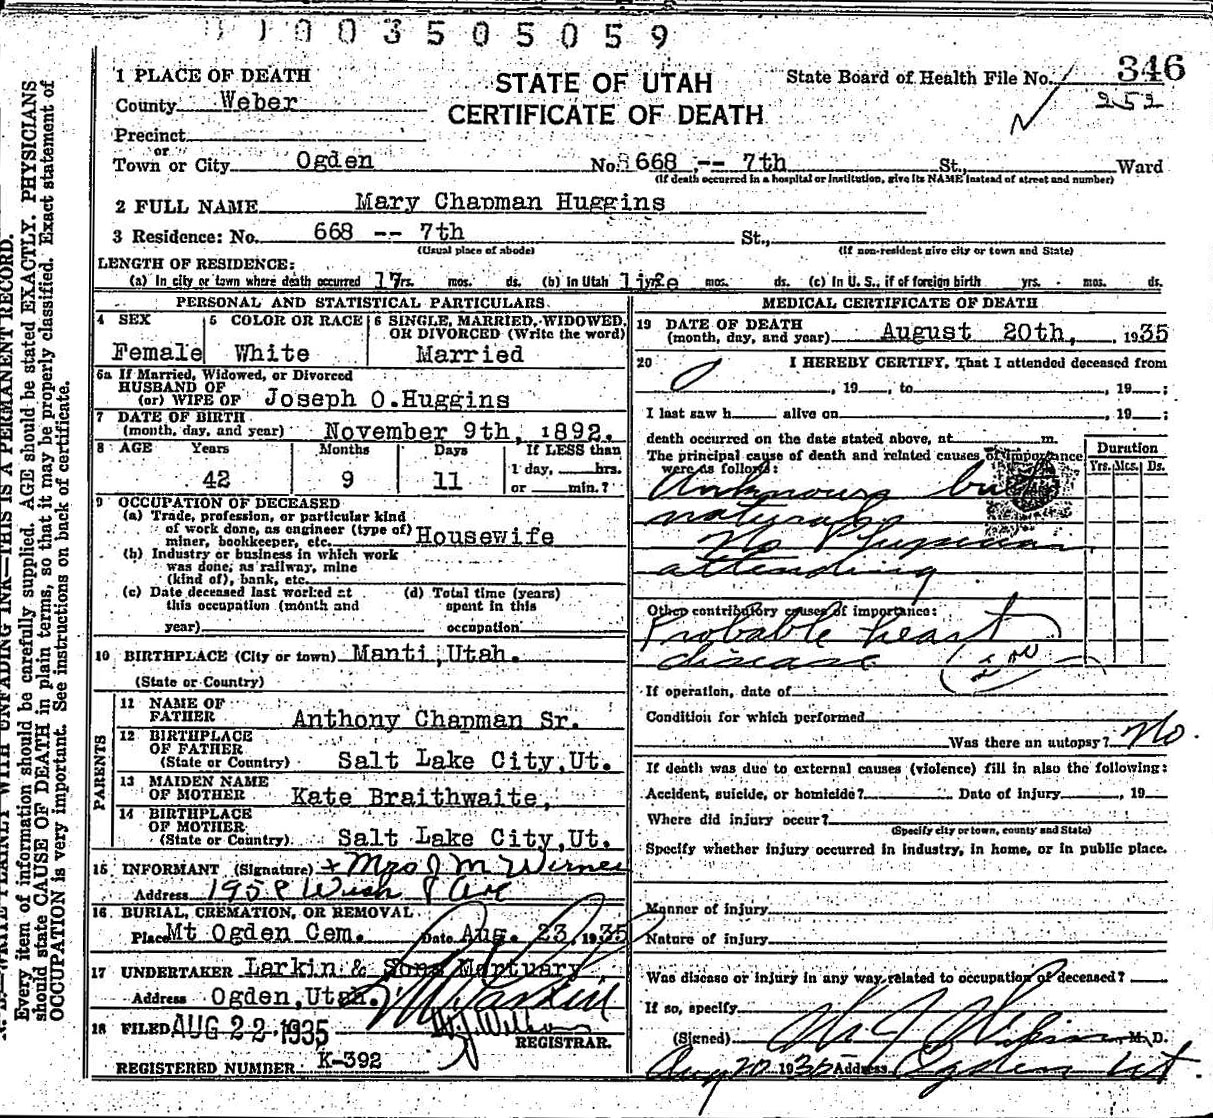 0 0 3 5 0 5 0 5 9
STATE OF UTAH
CERTIFICATE OF DEATH
State Board of Health File No. 346
252
1 PLACE OF DEATH
County Weber
Precinct
or
Town or City Ogden No. 668 -- 7th St., Ward
(If death occurred in a hospital or institution, give its NAME instead of street and number)
2 FULL NAME Mary Chapman Huggins
3 Residence: No. 668 -- 7th St.,
(Usual place of abode) (If non-resident give city or town and State)
LENGTH OF RESIDENCE:
(a) In city or town where death occurred 17 yrs. mos. ds. (b) In Utah life yrs. mos. ds. (c) In U. S., if of foreign birth yrs. mos. ds.
PERSONAL AND STATISTICAL PARTICULARS
4 SEX Female
5 COLOR OR RACE White
6 SINGLE, MARRIED, WIDOWED, OR DIVORCED (Write the word) Married
6a If Married, Widowed, or Divorced
HUSBAND OF
(or) WIFE OF Joseph O.Huggins
7 DATE OF BIRTH
(month, day, and year) November 9th, 1892.
8 AGE Years Months Days If LESS than
1 day, hrs.
42 9 11 or min.?
9 OCCUPATION OF DECEASED
(a) Trade, profession, or particular kind
of work done, as engineer (type of)
miner, bookkeeper, etc. Housewife
(b) Industry or business in which work
was done, as railway, mine
(kind of), bank, etc.
(c) Date deceased last worked at
this occupation (month and
year)
(d) Total time (years)
spent in this
occupation
10 BIRTHPLACE (City or town) Manti,Utah.
(State or Country)
PARENTS
11 NAME OF
FATHER Anthony Chapman Sr.
12 BIRTHPLACE
OF FATHER
(State or Country) Salt Lake City,Ut.
13 MAIDEN NAME
OF MOTHER Kate Braithwaite,
14 BIRTHPLACE
OF MOTHER
(State or Country) Salt Lake City,Ut.
15 INFORMANT (Signature) + Mrs J M
Address 1958 Wash Ave
16 BURIAL, CREMATION, OR REMOVAL
Place Mt Ogden Cem. Date Aug. 23, 1935
17 UNDERTAKER Larkin & Sons Mortuary
Address Ogden,Utah.
18 FILED AUG 22 1935
REGISTRAR.
REGISTERED NUMBER K-392
MEDICAL CERTIFICATE OF DEATH
19 DATE OF DEATH
(month, day, and year) August 20th, , 1935
20 I HEREBY CERTIFY, That I attended deceased from
, 19 , to , 19 ;
I last saw h alive on , 19 ;
death occurred on the date stated above, at m.
The principal cause of death and related causes of importance
were as follows:
Duration
Yrs. Mos. Ds.
Unknown but
natural
No Physician
attending
Other contributory causes of importance:
Probable heart
disease
If operation, date of
Condition for which performed
Was there an autopsy? No.
If death was due to external causes (violence) fill in also the following:
Accident, suicide, or homicide? Date of injury , 19
Where did injury occur?
(Specify city or town, county and State)
Specify whether injury occurred in industry, in home, or in public place.
Manner of injury
Nature of injury
Was disease or injury in any way related to occupation of deceased?
If so, specify
(Signed) M. D.
Aug 20 1935 Address Ogden Ut.
Every item of information should be carefully supplied. AGE should be stated EXACTLY. PHYSICIANS
should state CAUSE OF DEATH in plain terms, so that it may be properly classified. Exact statement of
OCCUPATION is very important. See instructions on back of certificate.
WRITE PLAINLY WITH UNFADING INK—THIS IS A PERMANENT RECORD.